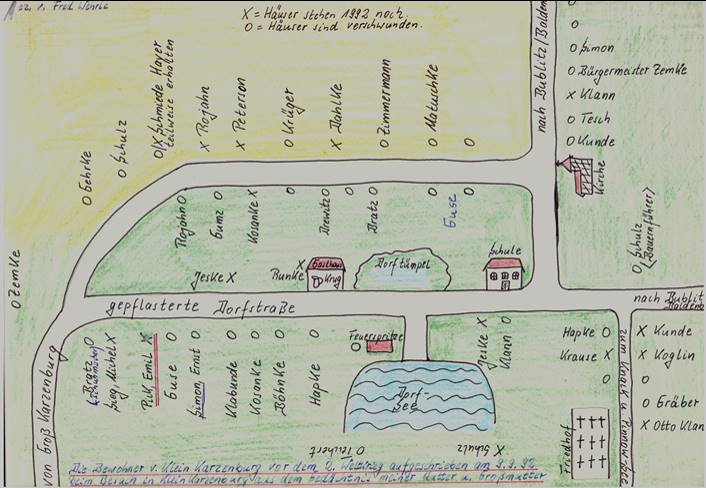 v. Fred Wehrle
X = Häuser stehen 1992 noch.
O = Häuser sind verschwunden.
nach Bublitz/Balden
O
O
O Simon
O Bürgermeister Zemke
X Klann
O Tesch
O Kunde
Kirche
O Gehrke
O Schulz
O/X Schmiede Hayer
teilweise erhalten
X Rojahn
X Petersen
O Krüger
X Dahlke
O Zimmermann
O Matuschke
O
O Zemke
Rojahn O
Gumz O
Kosanke X
O
Drewitz O
Bratz O
O
Guse O
O Schulz
(Bauernführer)
Jeske X
Runke X
Gasthaus
Krug
Dorftümpel
Schule
gepflasterte Dorfstraße
nach Bublitz
Baldenb
von Groß Karzenburg
Bratz O
(Schuhmacher)
Sieg, Michel X
Pik, Emil X
Guse O
Simon, Ernst O
Klabunde O
Kosanke O
Böhnke O
Hapke O
Feuerspritze
O
Dorf-
See
Jeske X
Klann O
Hapke O
Krause X
O
X Kunde
X Koglin
O
O Gräber
X Otto Klan
Friedhof
O Teichert
X Schulz
Die Bewohner v. Klein Karzenburg vor dem 2. Weltkrieg aufgeschrieben am 9.9.92
beim Besuch in Klein Karzenburg aus dem Gedächtnis meiner Mutter u. Großmutter